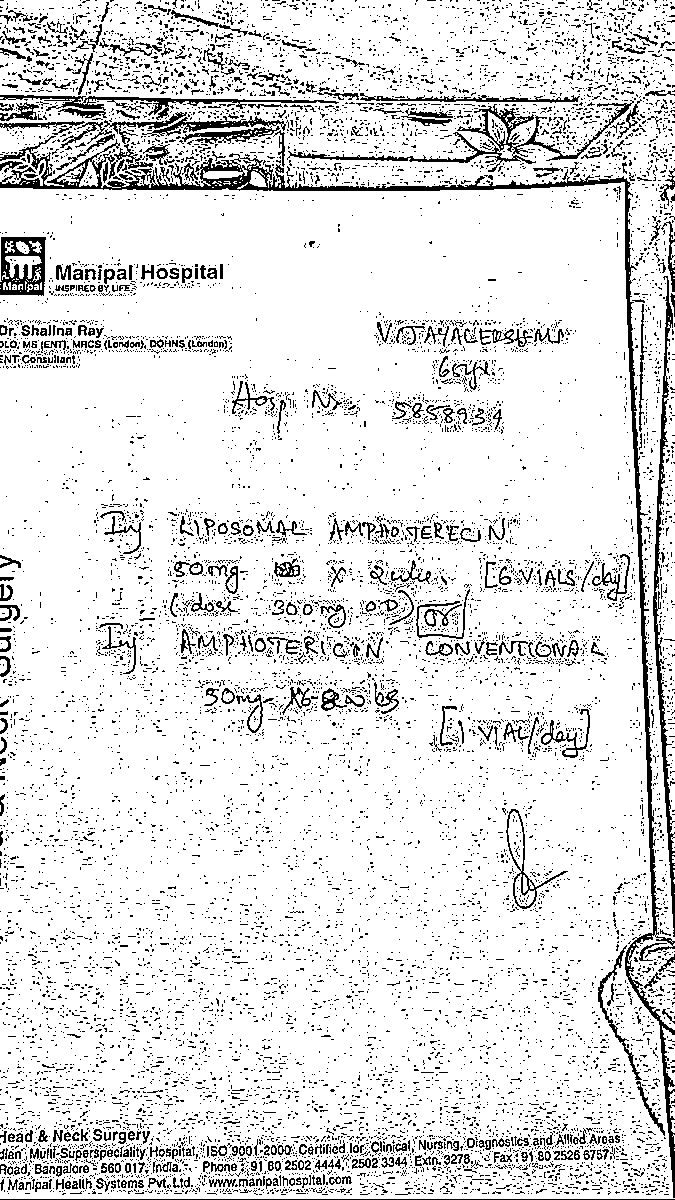 Manipal Hospital
INSPIRED BY LIFE
Manipal
Dr. Shalina Ray
DLO, MS (ENT), MRCS (London), DOHNS (London)
ENT Consultant
Hosp No. 5858934
Inj LIPOSOMAL AMPHOTERECIN
50mg X [6 VIALS/day]
(dose 300mg OD) or
Inj AMPHOTERICIN CONVENTIONAL
50mg
[1 VIAL/day]
& Neck Surgery
Head & Neck Surgery
dian Multi-Superspeciality Hospital, ISO 9001-2000 Certified for Clinical, Nursing, Diagnostics and Allied Areas
Road, Bangalore - 560 017, India. Phone : 91 80 2502 4444, 2502 3344 Extn. 3278, Fax : 91 80 2526 6757
f Manipal Health Systems Pvt. Ltd. www.manipalhospital.com